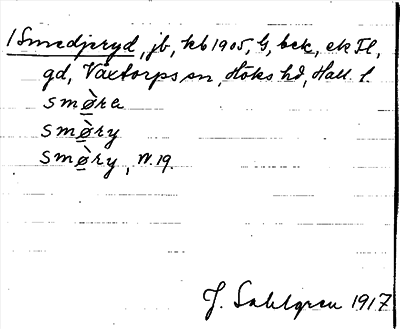 1 Smedjeryd, jb, kb 1905, G, bek, ek Fl,
gd, Växtorps sn, Höks hd, Hall. l.
smø̀ra
smø̀ry
smø̀ry, W. 19.
J. Sahlgren 1917